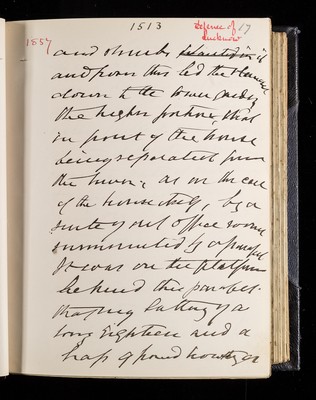 1513
Defence of 17
Lucknow
1857
and shrubs planted in it
and from this led the
down to the town
the higher portion, that
in front of the house
being separated from
the town, as in the case
of the house itself, by a
suite of out office rooms
surmounted by a parapet
It was on the platform
behind this parapet
that my battery of a
long Eighteen and a
half pound howitzer